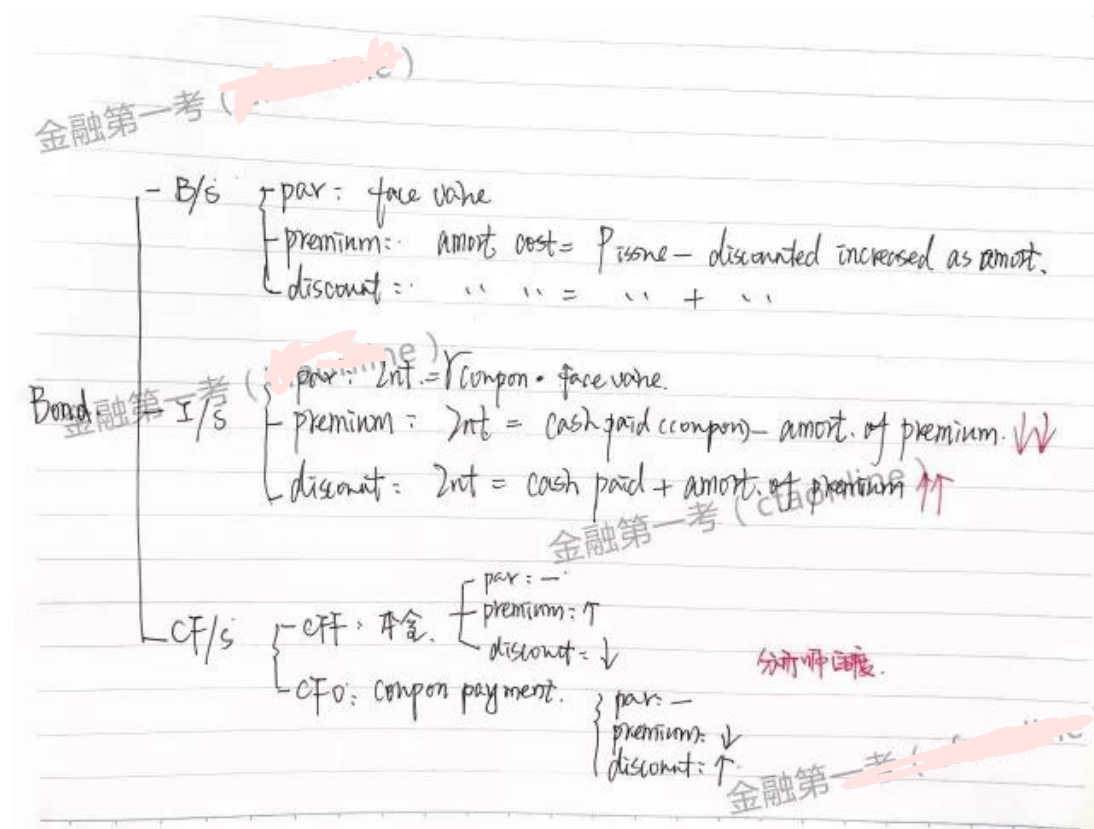 金融第一考（
- B/S par: face value
premium: amort cost = P issue - discounted increased as amort.
discount: " " = " + "
金融第一考（ ne）
Bond
I/S par: Int. = r coupon · face value.
premium: Int = cash paid (coupon) - amort. of premium. ↓↓
discount: Int = cash paid + amort. of premium ↑↑
金融第一考（cfaonline）
par: -
CF/S CFF: 本金. premium: ↑
discount: ↓
分析师角度.
CFO: coupon payment. par: -
premium: ↓
discount: ↑
金融第一考（